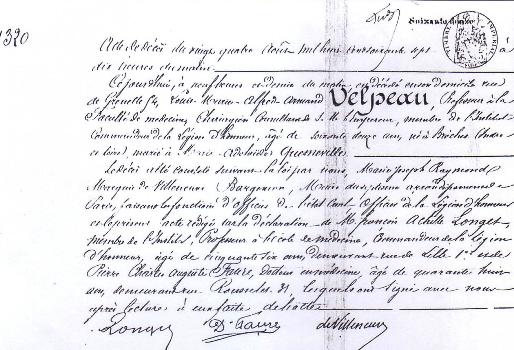 1320
Acte de décès du vingt quatre Août mil huit cent soixante sept à
dix heures du matin.
Cejourd'hui, à neuf heures du matin, est décédé en son domicile rue
de Grenelle 54, Louis Marie Alfred Armand Velpeau, Professeur à la
Faculté de médecine, Chirurgien Consultant de S. M. l'Empereur, membre de l'Institut
Commandeur de la Légion d'honneur, âgé de soixante douze ans, né à Brèches (Indre
et Loire), marié à Marie Adelaïde Quesneville
Le décès a été constaté suivant la loi par nous, Marie Joseph Raymond
Marquis de Villeneuve Bargemon, Maire du septième arrondissement de
Paris, faisant les fonctions d'Officier de l'état Civil, Officier de la Légion d'honneur
et le présent acte rédigé sur la déclaration de M. François Achille Longet
membre de l'Institut, Professeur à l'école de médecine, Commandeur de la Légion
d'honneur, âgé de cinquante six ans, demeurant rue de Lille 1 et de
Pierre Charles Auguste Faure, docteur en médecine, âgé de quarante huit
ans, demeurant rue Rousselet 31, lesquels ont signé avec nous
après lecture à eux faite
Longet Dr Faure de Villeneuve